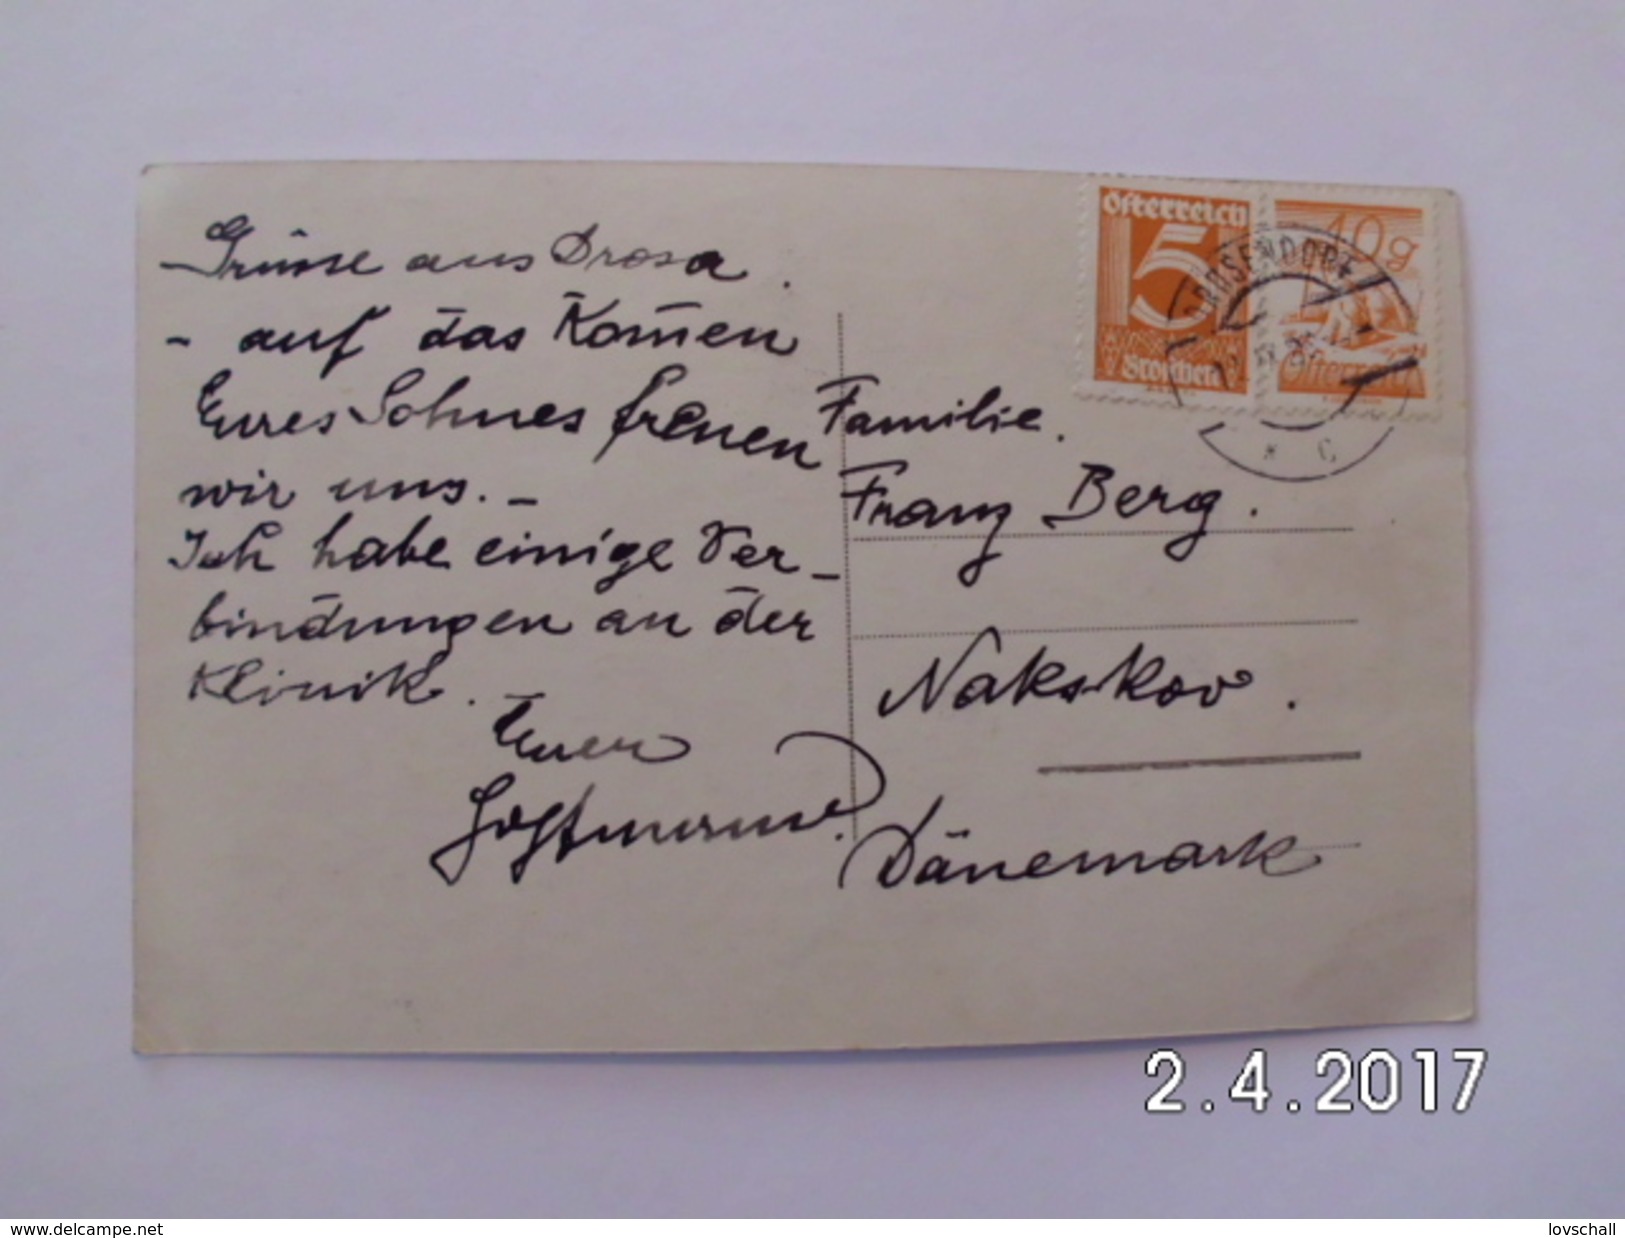 Grüsse aus Drosa.
- auf das Kom̄en
Eures Sohnes freuen
wir uns. -
Ich habe einige Ver-
bindungen an der
Klinik.
Euer
Familie.
Franz Berg.
Nakskov.
Dänemark
Österreich
5
Groschen
10g
Österreich
DROSENDORF
* C
2.4.2017
www.delcampe.net
lovschall